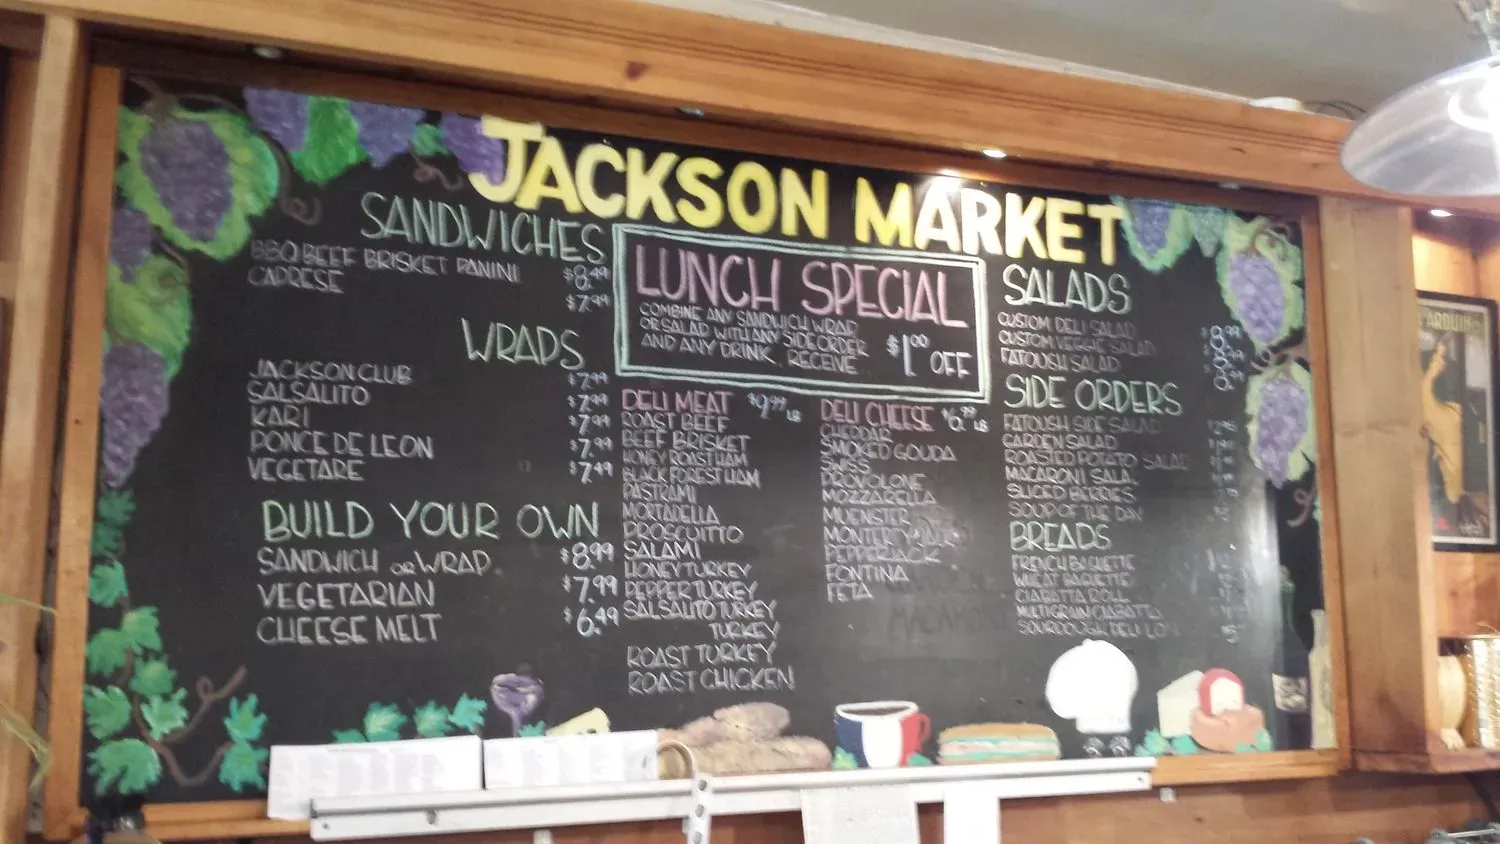 JACKSON MARKET
SANDWICHES
BBQ BEEF BRISKET PANINI $8.49
CAPRESE $7.99
WRAPS
JACKSON CLUB $7.99
SALSALITO $7.99
KARI $7.99
PONCE DE LEON $7.99
VEGETARE $7.49
BUILD YOUR OWN
SANDWICH OR WRAP $8.99
VEGETARIAN $7.99
CHEESE MELT $6.49
LUNCH SPECIAL
COMBINE ANY SANDWICH WRAP
OR SALAD WITH ANY SIDE ORDER
AND ANY DRINK, RECEIVE $1.00 OFF
DELI MEAT $9.99 LB
ROAST BEEF
BEEF BRISKET
HONEY ROAST HAM
BLACK FOREST HAM
PASTRAMI
MORTADELLA
PROSCUITTO
SALAMI
HONEY TURKEY
PEPPER TURKEY
SALSALITO TURKEY
TURKEY
ROAST TURKEY
ROAST CHICKEN
DELI CHEESE $6.99 LB
CHEDDAR
SMOKED GOUDA
SWISS
PROVOLONE
MOZZARELLA
MUENSTER
MONTEREY JACK
PEPPERJACK
FONTINA
FETA
SALADS
CUSTOM DELI SALAD $8.99
CUSTOM VEGGIE SALAD
FATOUSH SALAD
SIDE ORDERS
FATOUSH SIDE SALAD
GARDEN SALAD
ROASTED POTATO SALAD
MACARONI SALA
SLICED BERRIES
SOUP OF THE DAY
BREADS
FRENCH BAGUETTE
WHEAT BAGUETTE
CIABATTA ROLL
MULTIGRAIN CIABATTA
SOURDOUGH DELI LOA